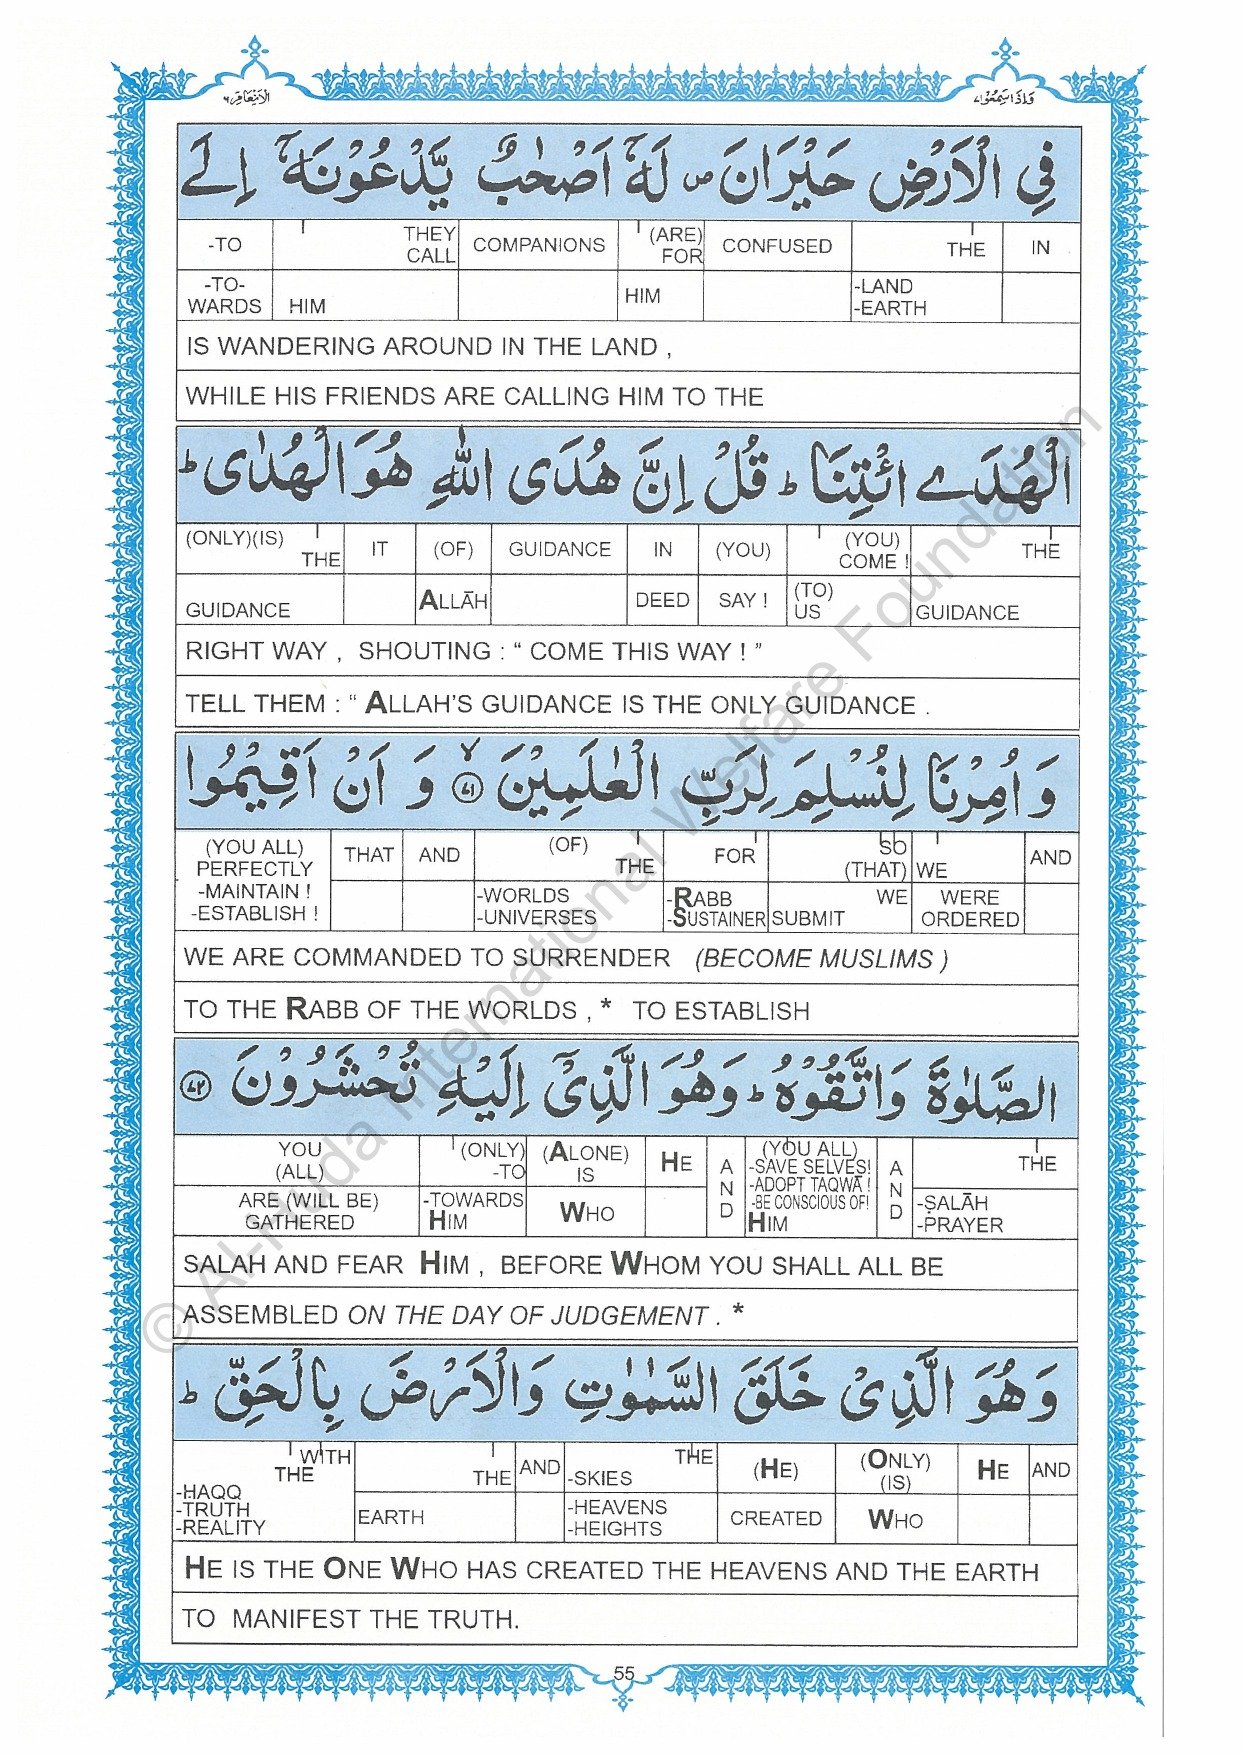 وَاِذَا سَمِعُوْا ٧
الْاَنْعَام ٦
فِي الْاَرْضِ حَيْرَانَ ص لَهٗٓ اَصْحٰبٌ يَّدْعُوْنَهٗٓ اِلَى
IN THE CONFUSED (ARE) FOR COMPANIONS THEY CALL -TO
-LAND -EARTH HIM HIM -TO- WARDS
IS WANDERING AROUND IN THE LAND ,
WHILE HIS FRIENDS ARE CALLING HIM TO THE
الْهُدَى ائْتِنَا ط قُلْ اِنَّ هُدَى اللّٰهِ هُوَ الْهُدٰى ط
THE (YOU) COME ! (YOU) IN GUIDANCE (OF) IT (ONLY)(IS) THE
GUIDANCE (TO) US SAY ! DEED ALLĀH GUIDANCE
RIGHT WAY , SHOUTING : “ COME THIS WAY ! ”
TELL THEM : “ ALLAH’S GUIDANCE IS THE ONLY GUIDANCE .
وَ اُمِرْنَا لِنُسْلِمَ لِرَبِّ الْعٰلَمِيْنَ ٧١ لا وَ اَنْ اَقِيْمُوا
AND WE SO (THAT) FOR (OF) THE AND THAT (YOU ALL) PERFECTLY -MAINTAIN ! -ESTABLISH !
WERE ORDERED WE SUBMIT -RABB -SUSTAINER -WORLDS -UNIVERSES
WE ARE COMMANDED TO SURRENDER (BECOME MUSLIMS )
TO THE RABB OF THE WORLDS , * TO ESTABLISH
الصَّلٰوةَ وَاتَّقُوْهُ ط وَهُوَ الَّذِيْٓ اِلَيْهِ تُحْشَرُوْنَ ٧٢
THE AND (YOU ALL) -SAVE SELVES! -ADOPT TAQWĀ ! -BE CONSCIOUS OF! HIM AND HE (ALONE) IS (ONLY) -TO YOU (ALL)
-ṢALĀH -PRAYER WHO -TOWARDS HIM ARE (WILL BE) GATHERED
SALAH AND FEAR HIM , BEFORE WHOM YOU SHALL ALL BE
ASSEMBLED ON THE DAY OF JUDGEMENT . *
وَ هُوَ الَّذِيْ خَلَقَ السَّمٰوٰتِ وَالْاَرْضَ بِالْحَقِّ ط
AND HE (ONLY) (IS) (HE) THE -SKIES AND THE WITH THE -HAQQ -TRUTH -REALITY
WHO CREATED -HEAVENS -HEIGHTS EARTH
HE IS THE ONE WHO HAS CREATED THE HEAVENS AND THE EARTH
TO MANIFEST THE TRUTH.
55
© Al-Huda International Welfare Foundation